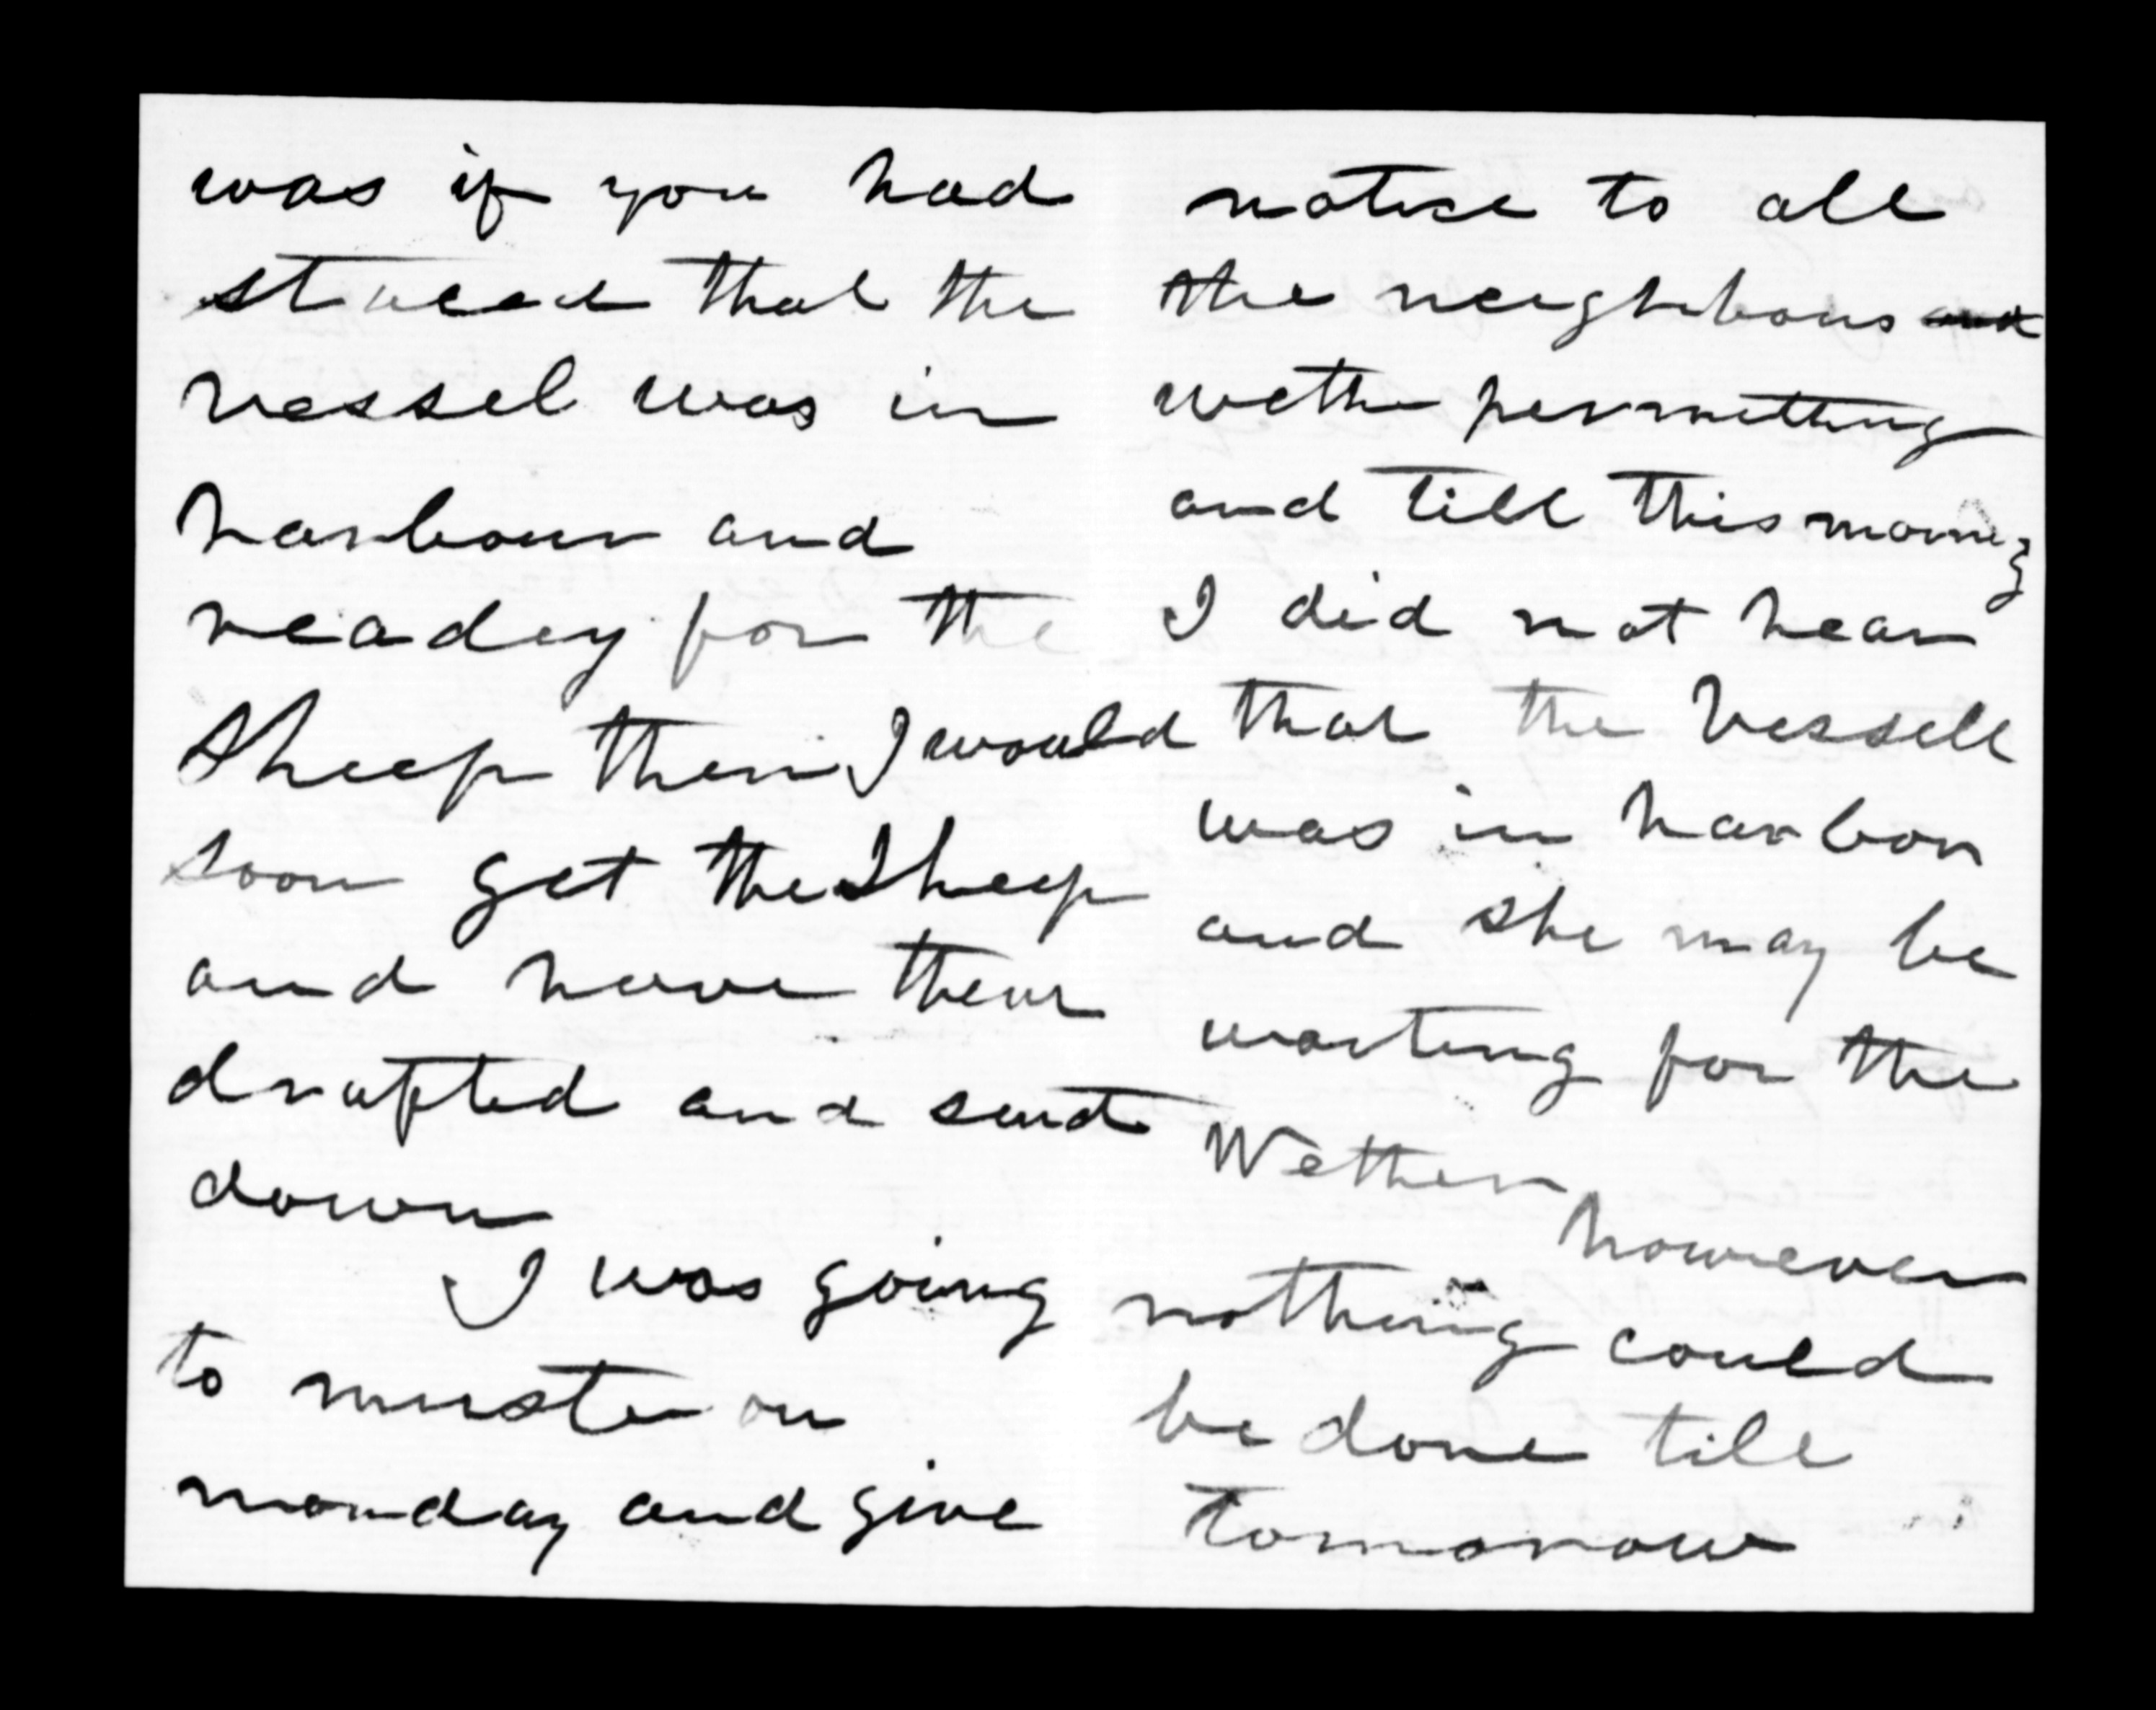 was if you had
staeed that the
vessel was in
harbour and
readey for the
Sheep then I would
soon get the Sheep
and have them
drafted and send
down
I was going
to muster on
monday and give
notice to all
the neighbours and
wether permitting
and till this morning
I did not hear
that the Vessell
was in harbor
and she may be
waiting for the
Wether
however
nothing could
be done till
tomorow